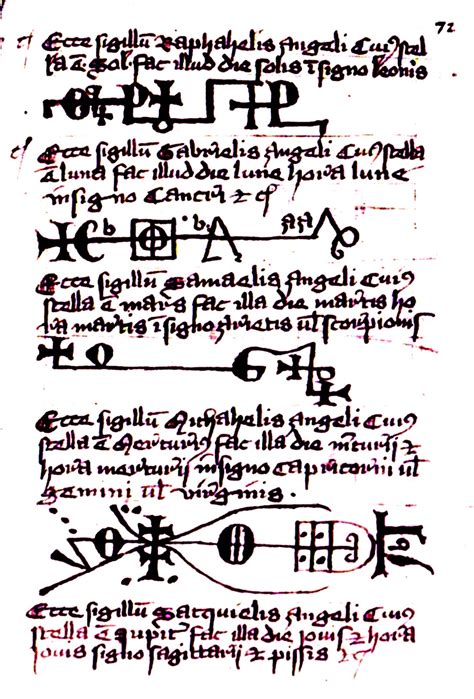 72
Ecce sigillũ Raphahelis Angeli Cuiꝯ stel
la ẽ Sol. fac illud die solis ĩ signo leonis
Ecce sigillũ Gabrielis Angeli Cuiꝯ stella
ẽ luna fac illud die lune hora lune
in signo Cancri &
Ecce sigillũ Samaelis Angeli Cuiꝯ
stella ẽ mars fac illa die martis ho
ra martis ĩ signo Arietis ul' Scorpionis
Ecce sigillũ Michahelis Angeli Cuiꝯ
stella ẽ Mercuriꝯ fac illa die m̃curii &
hora mercurii in signo Capricorni ul'
Gemini ul' virginis.
Ecce sigillũ Satquielis Angeli Cuiꝯ
stella ẽ Iupit' fac illa die iouis & hora
iouis signo sagittarii & pissis